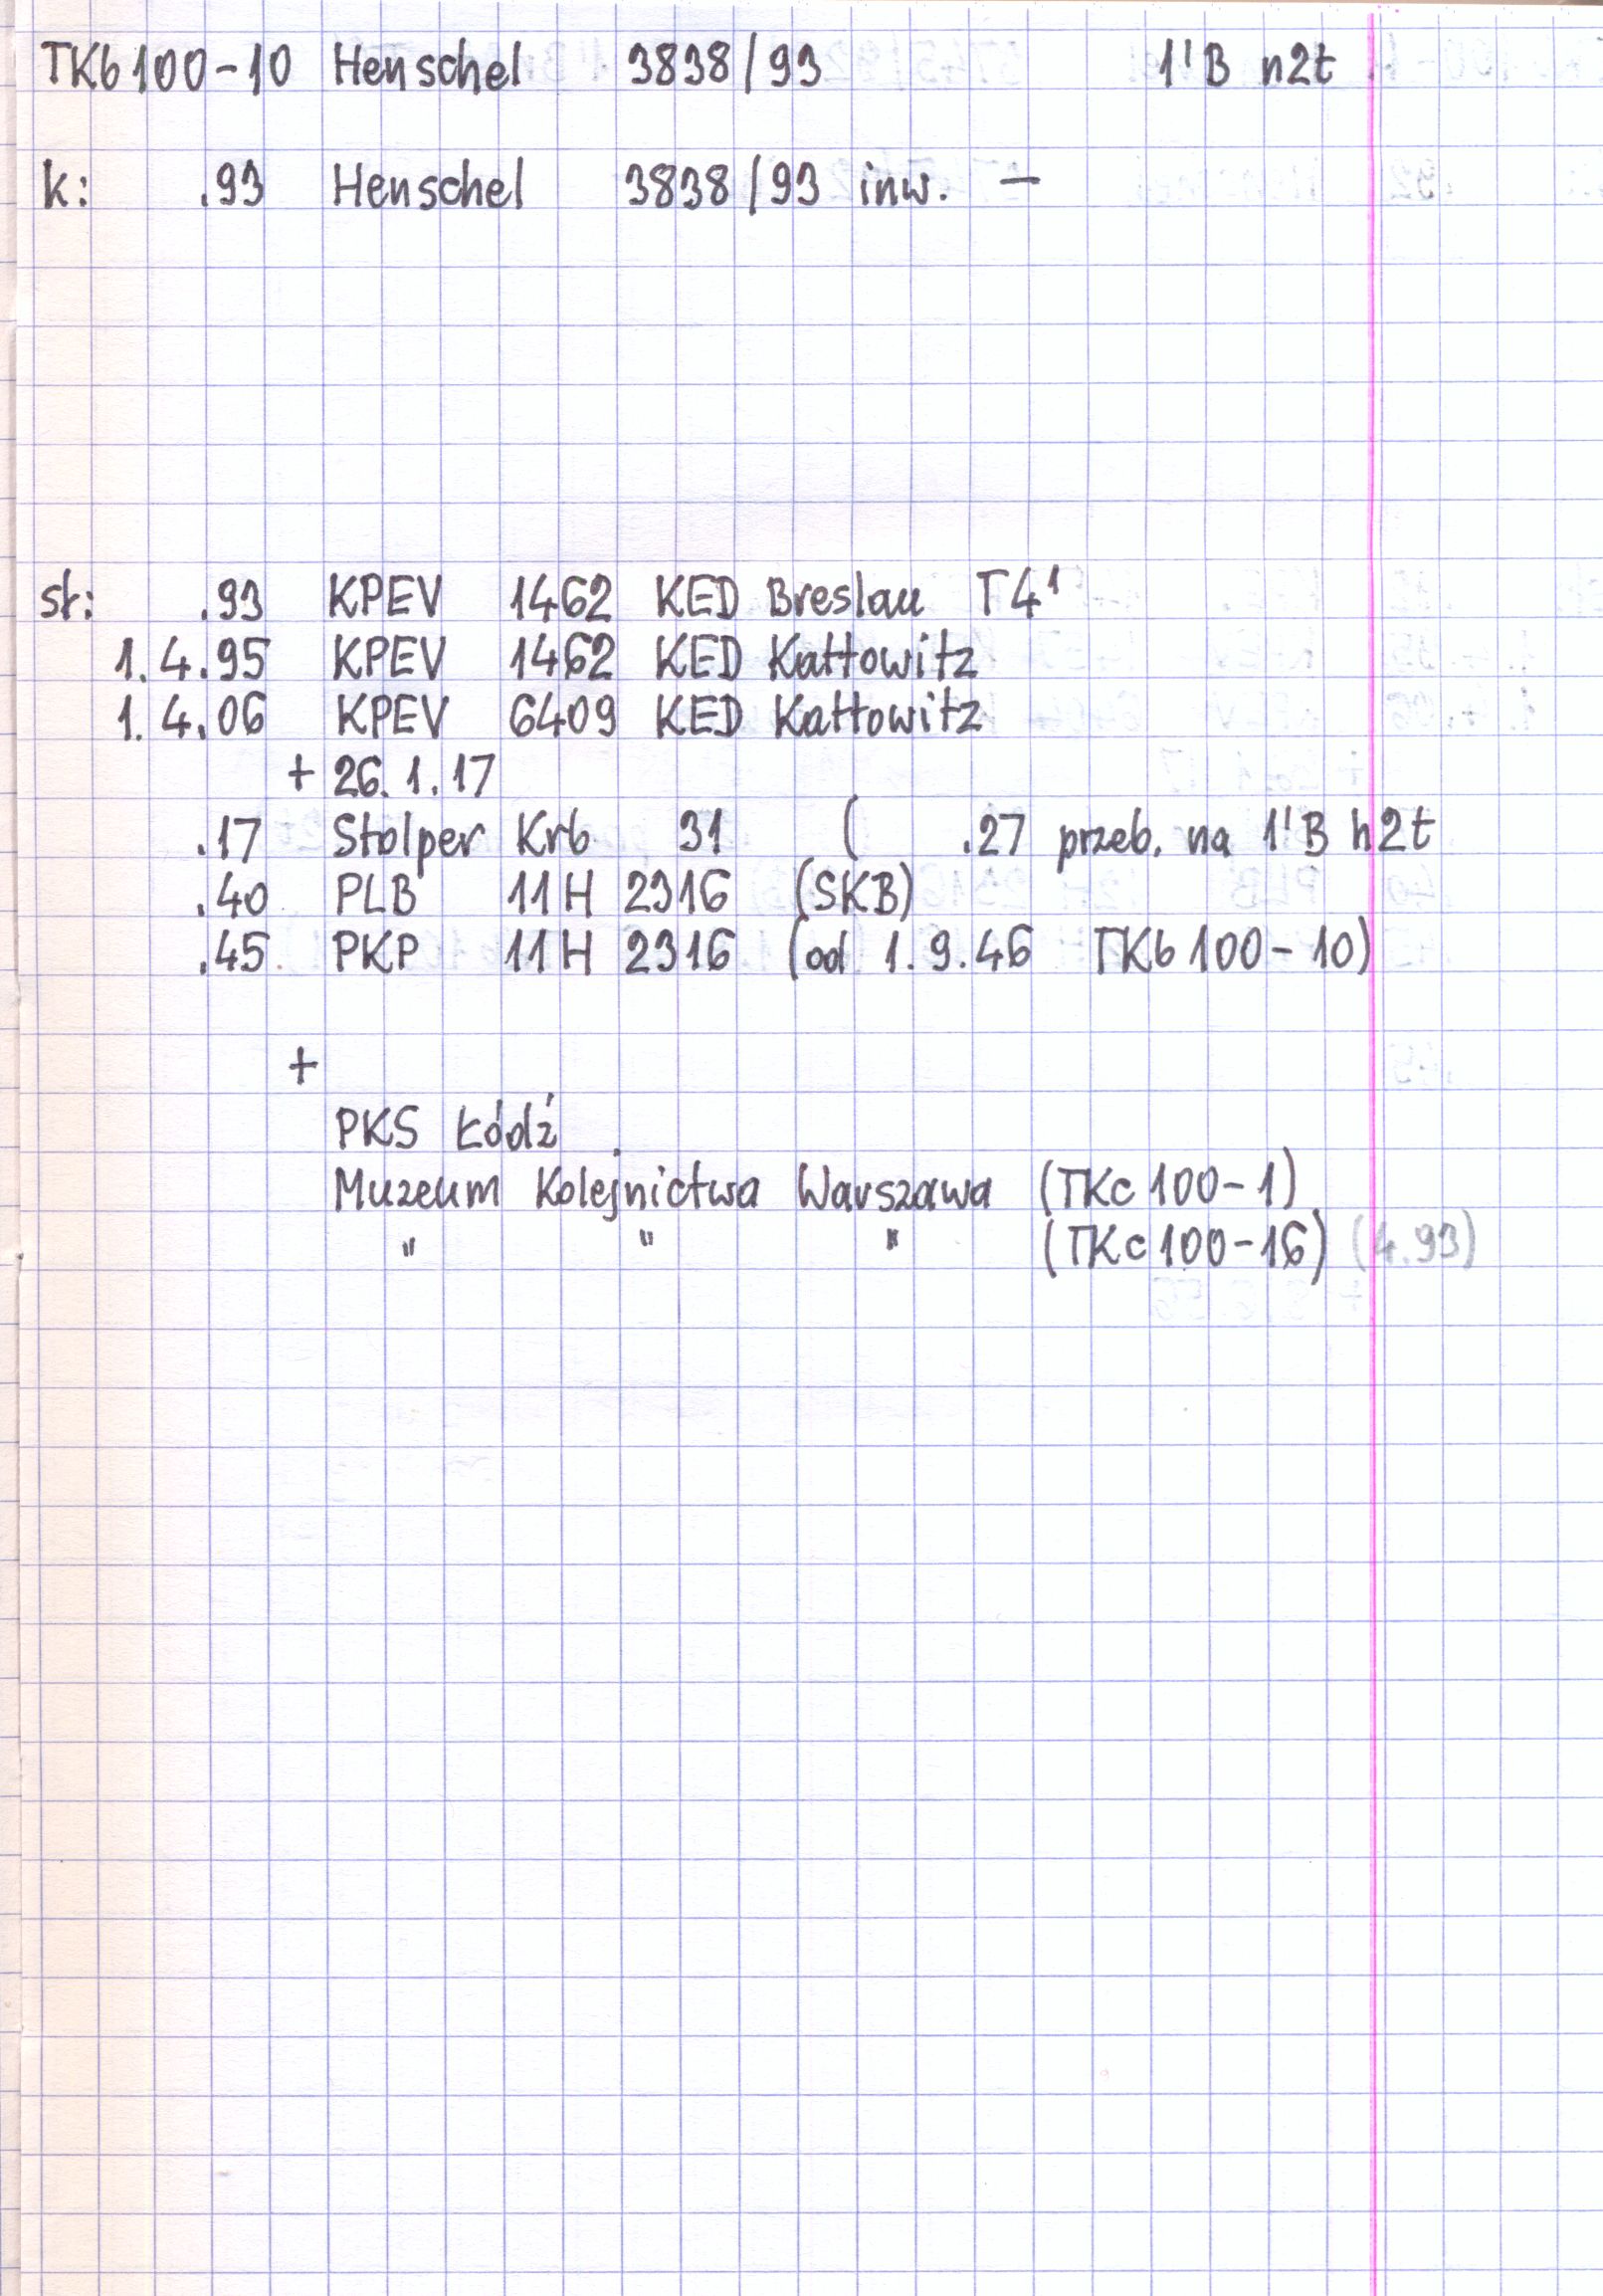 TKb 100-10 Henschel 3838/93 1'B n2t
k: .93 Henschel 3838/93 inw. —
st: .93 KPEV 1462 KED Breslau T4¹
1.4.95 KPEV 1462 KED Kattowitz
1.4.06 KPEV 6409 KED Kattowitz
+ 26.1.17
.17 Stolper Krb 31 ( .27 przeb. na 1'B h2t
.40 PLB 11H 2316 (SKB)
.45 PKP 11H 2316 (od 1.9.46 TKb 100-10)
+
PKS Łódź
Muzeum Kolejnictwa Warszawa (TKc 100-1)
" " " (TKc 100-16) (4.93)